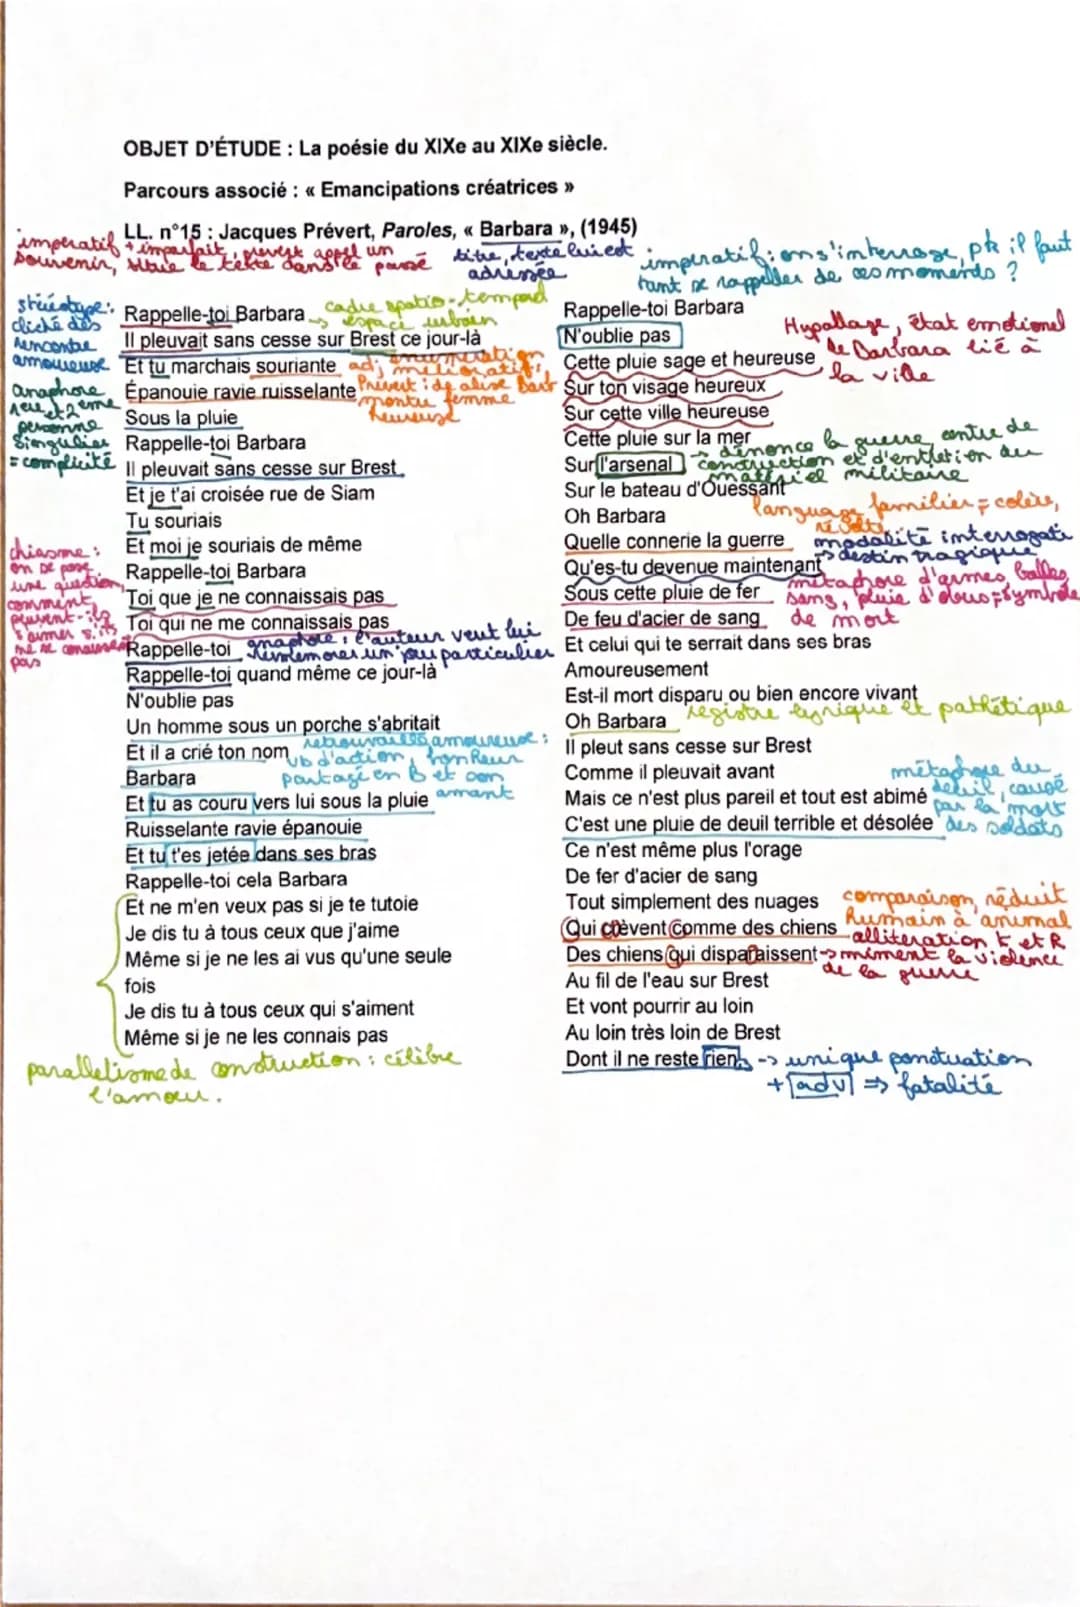 OBJET D'ÉTUDE : La poésie du XIXe au XIXe siècle.
Parcours associé : « Emancipations créatrices »
LL. n°15 : Jacques Prévert, Paroles, « Barbara », (1945)
impératif + imparfait, prévert appel un
souvenir, situe le texte dans le passé
titre, texte lui est
adressée
stéréotype :
cliché des
rencontre
amoureuse
anaphore
1ère et 2ème
personne
singulier
= complicité
chiasme :
on se pose
une question,
comment
peuvent-ils
s'aimer s'ils
ne se connaissent
pas
Rappelle-toi Barbara
cadre spatio-temporel
-> espace urbain
Il pleuvait sans cesse sur Brest ce jour-là
Et tu marchais souriante
énumération
adj mélioratif,
Épanouie ravie ruisselante
Prévert idéalise Barb
montre femme
heureuse
Sous la pluie
Rappelle-toi Barbara
Il pleuvait sans cesse sur Brest
Et je t'ai croisée rue de Siam
Tu souriais
Et moi je souriais de même
Rappelle-toi Barbara
Toi que je ne connaissais pas
Toi qui ne me connaissais pas
Rappelle-toi
anaphore : l'auteur veut lui
remémorer un jour particulier
Rappelle-toi quand même ce jour-là
N'oublie pas
Un homme sous un porche s'abritait
Et il a crié ton nom
retrouvailles amoureuse :
vb d'action, bonheur
partagé en B et son
amant
Barbara
Et tu as couru vers lui sous la pluie
Ruisselante ravie épanouie
Et tu t'es jetée dans ses bras
Rappelle-toi cela Barbara
Et ne m'en veux pas si je te tutoie
Je dis tu à tous ceux que j'aime
Même si je ne les ai vus qu'une seule
fois
Je dis tu à tous ceux qui s'aiment
Même si je ne les connais pas
parallélisme de construction : célèbre
l'amour.
impératif : on s'interroge, pk il faut
tant se rappeller de ces moments ?
Rappelle-toi Barbara
N'oublie pas
Cette pluie sage et heureuse
Hypallage, état émotionel
de Barbara lié à
la ville
Sur ton visage heureux
Sur cette ville heureuse
Cette pluie sur la mer
Sur l'arsenal
-> dénonce la guerre, centre de
construction et d'entretien du
matériel militaire
Sur le bateau d'Ouessant
Oh Barbara
language familier = colère,
révolte
Quelle connerie la guerre
modalité interrogati
-> destin tragique
Qu'es-tu devenue maintenant
Sous cette pluie de fer
métaphore d'armes, balles,
sang, pluie d'obus = symbole
de mort
De feu d'acier de sang
Et celui qui te serrait dans ses bras
Amoureusement
Est-il mort disparu ou bien encore vivant
Oh Barbara
registre lyrique et pathétique
Il pleut sans cesse sur Brest
Comme il pleuvait avant
Mais ce n'est plus pareil et tout est abimé
C'est une pluie de deuil terrible et désolée
métaphore du
deuil, causé
par la mort
des soldats
Ce n'est même plus l'orage
De fer d'acier de sang
Tout simplement des nuages
Qui crèvent comme des chiens
comparaison, réduit
humain à animal
Des chiens qui disparaissent
alliteration K et R
-> miment la violence
de la guerre
Au fil de l'eau sur Brest
Et vont pourrir au loin
Au loin très loin de Brest
Dont il ne reste rien.
-> unique ponctuation
+ adv => fatalité